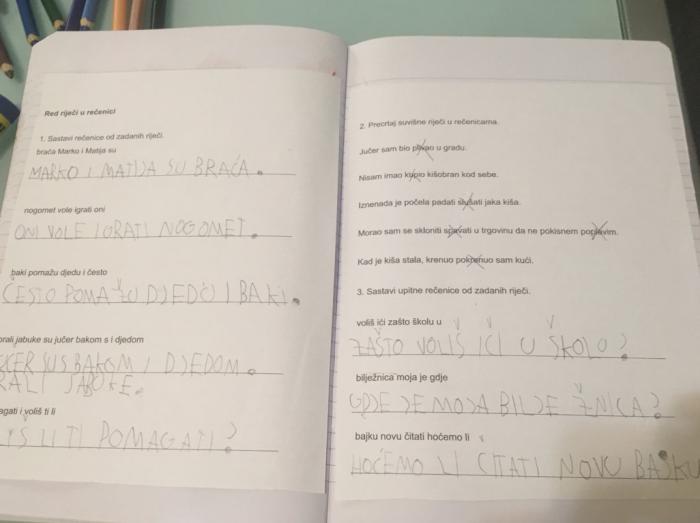 Red riječi u rečenici
1. Sastavi rečenice od zadanih riječi.
braća Marko i Matija su
MARKO I MATIJA SU BRAĆA.
nogomet vole igrati oni
ONI VOLE IGRATI NOGOMET.
baki pomažu djedu i često
ČESTO POMAŽU DJEDU I BAKI.
brali jabuke su jučer bakom s i djedom
ČER SU S BAKOM I DJEDOM.
RALI JABUKE.
agati i voliš ti li
IŠ LI TI POMAGATI?
2. Precrtaj suvišne riječi u rečenicama.
Jučer sam bio plivao u gradu.
Nisam imao kupio kišobran kod sebe.
Iznenada je počela padati slušati jaka kiša.
Morao sam se skloniti spavati u trgovinu da ne pokisnem poplavim.
Kad je kiša stala, krenuo pokrenuo sam kući.
3. Sastavi upitne rečenice od zadanih riječi.
voliš ići zašto školu u
ZAŠTO VOLIŠ IĆI U ŠKOLU?
bilježnica moja je gdje
GDJE JE MOJA BILJEŽNICA?
bajku novu čitati hoćemo li
HOĆEMO LI ČITATI NOVU BAJKU